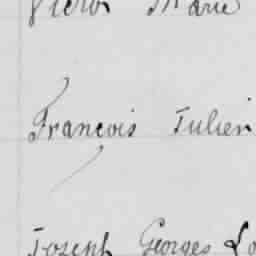 Victor Marie
François Julien
Joseph Georges Lo